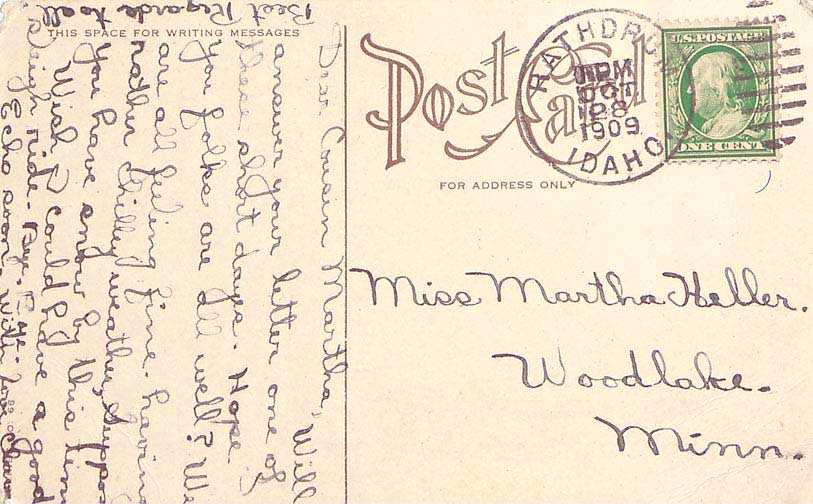 Best Regards to all
THIS SPACE FOR WRITING MESSAGES
Dear Cousin Martha, Will
answer your letter one of
these short days. Hope
you folks are all well? We
are all feeling fine. having
rather chilly weather, suppose
you have snow by this time
Wish I could have a good
sleigh ride. Bye. Bye.
Echo soon. With Love
Post Card
FOR ADDRESS ONLY
RATHDRUM
PM
OCT
28
1909
IDAHO
U.S. POSTAGE
ONE CENT
Miss Martha Heller.
Woodlake.
Minn.